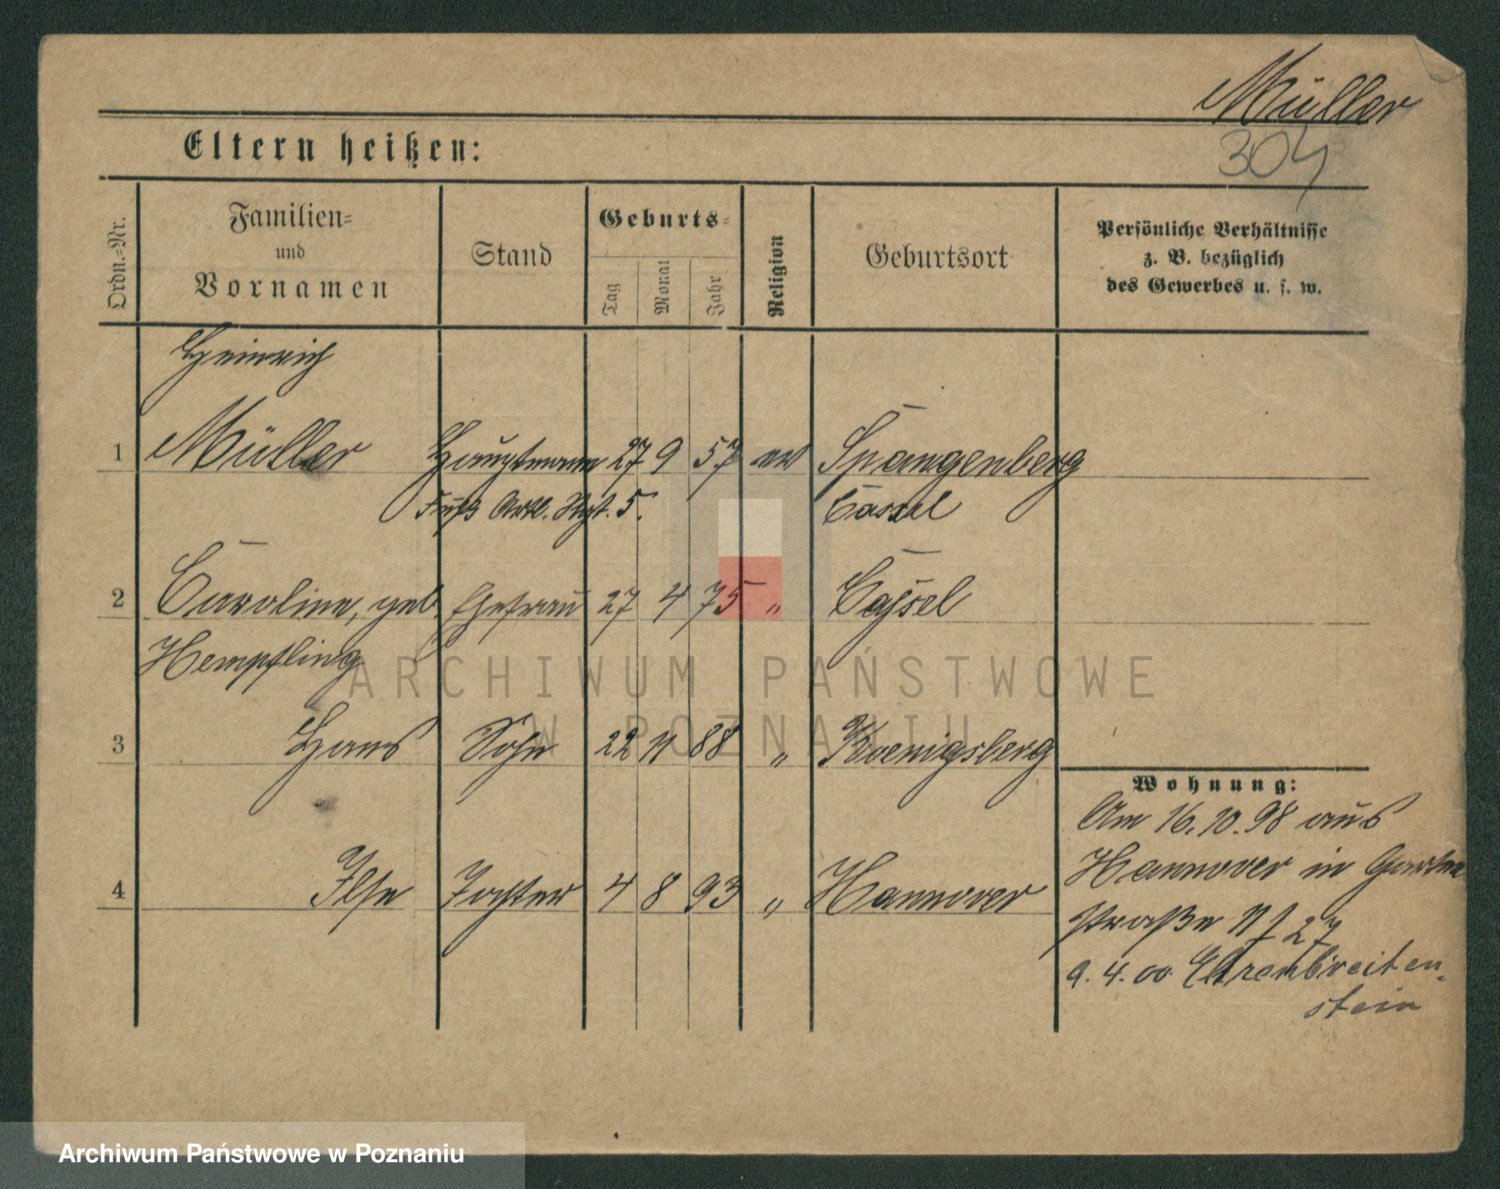 Müller
304
Eltern heißen:
Ordn.=Nr.
Familien=
und
Vornamen
Stand
Geburts=
Tag
Monat
Jahr
Religion
Geburtsort
Persönliche Verhältnisse
z. B. bezüglich
des Gewerbes u. s. w.
Heinrich
1 Müller Hauptmann 27 9 57 ev Spangenberg
Fuß Artl. Rgt. 5. Cassel
2 Caroline, geb. Ehefrau 27 4 75 " Cassel
Hempfling
3 Hans Sohn 22 11 88 " Koenigsberg
4 Ilse Tochter 4 8 93 " Hannover
Wohnung:
Am 16.10.98 aus
Hannover in Garten
straße 27
9.4.00 Ehrenbreiten-
stein
ARCHIWUM PAŃSTWOWE
W POZNANIU
Archiwum Państwowe w Poznaniu